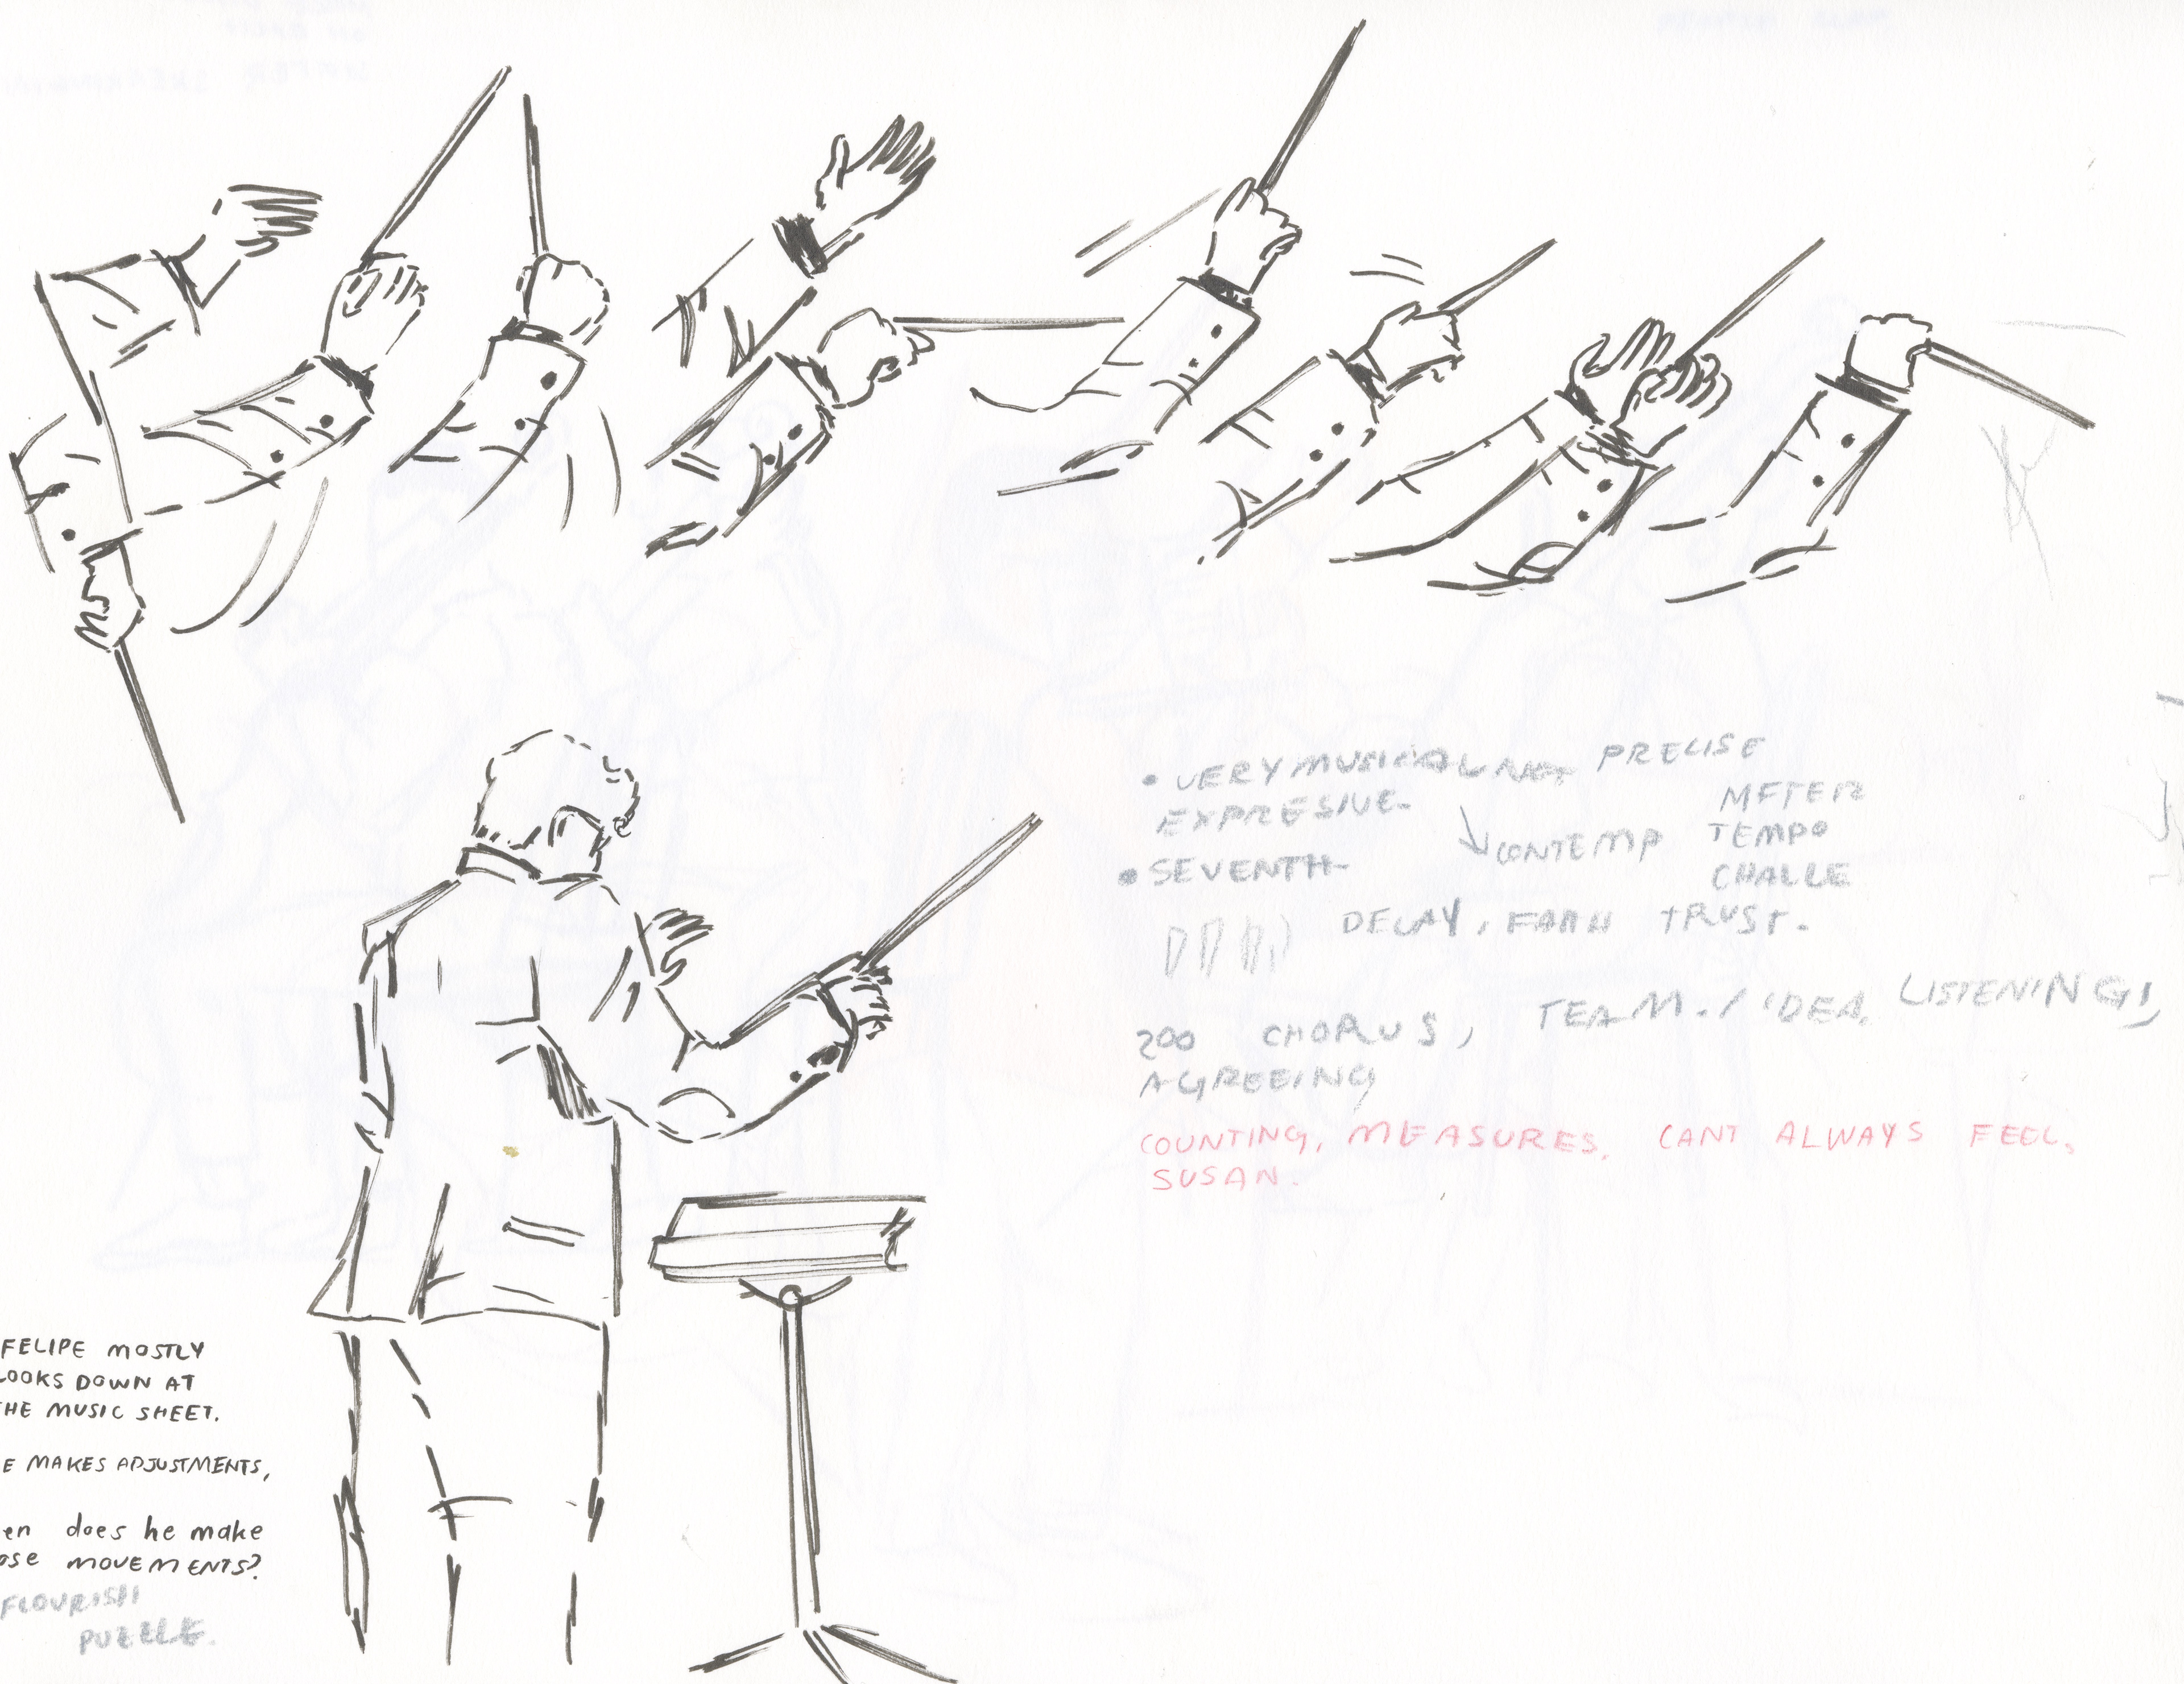 • VERY MUSICAL PRECISE
EXPRESIVE METER
CONTEMP TEMPO
• SEVENTH CHALLE
DELAY, TRUST.
200 CHORUS, TEAM. / IDEA, LISTENING,
AGREEING
COUNTING, MEASURES, CANT ALWAYS FEEL,
SUSAN.
FELIPE MOSTLY
LOOKS DOWN AT
THE MUSIC SHEET.
E MAKES ADJUSTMENTS,
en does he make
ose MOVEMENTS?
FLOURISH
PUZZLE.